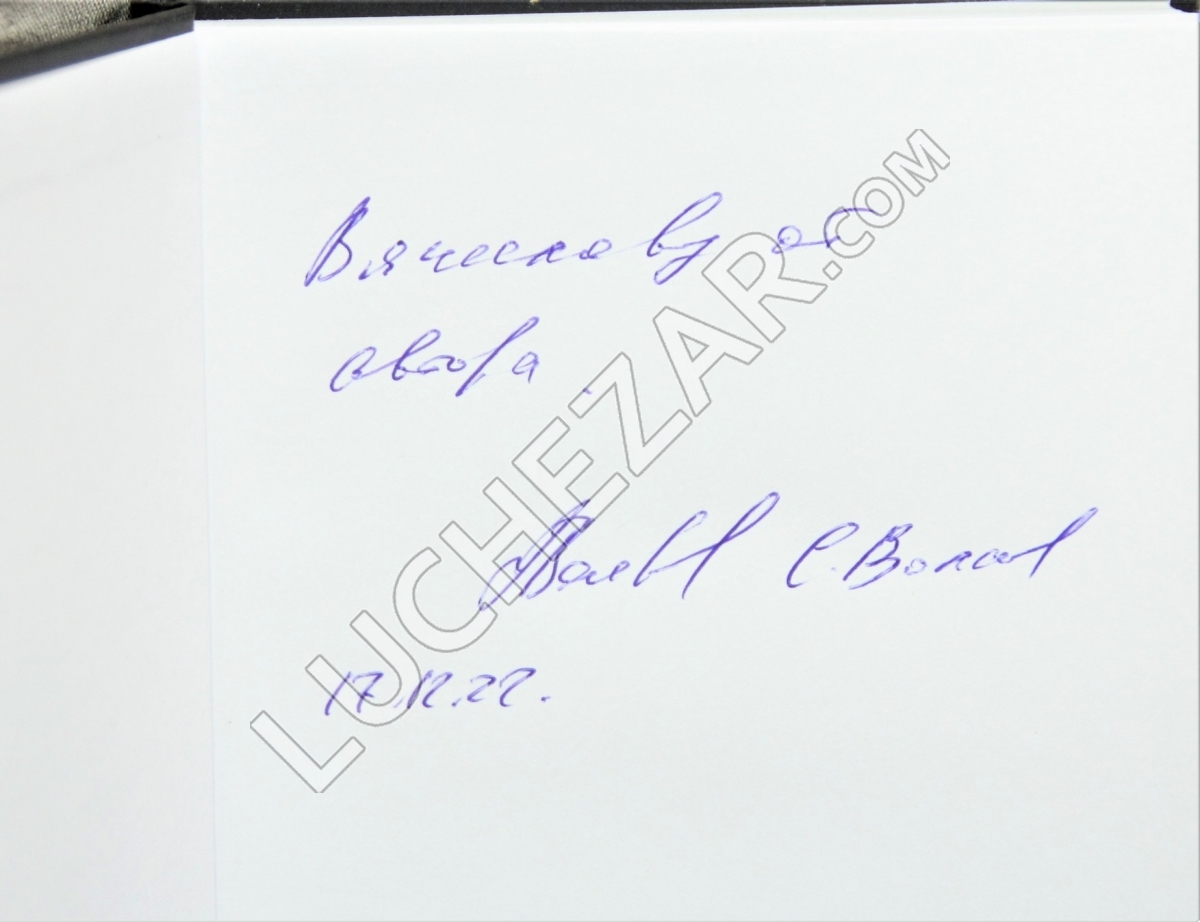 Вячеславу от
автора.
С. Волков
17.12.22.
LUCHEZAR.COM